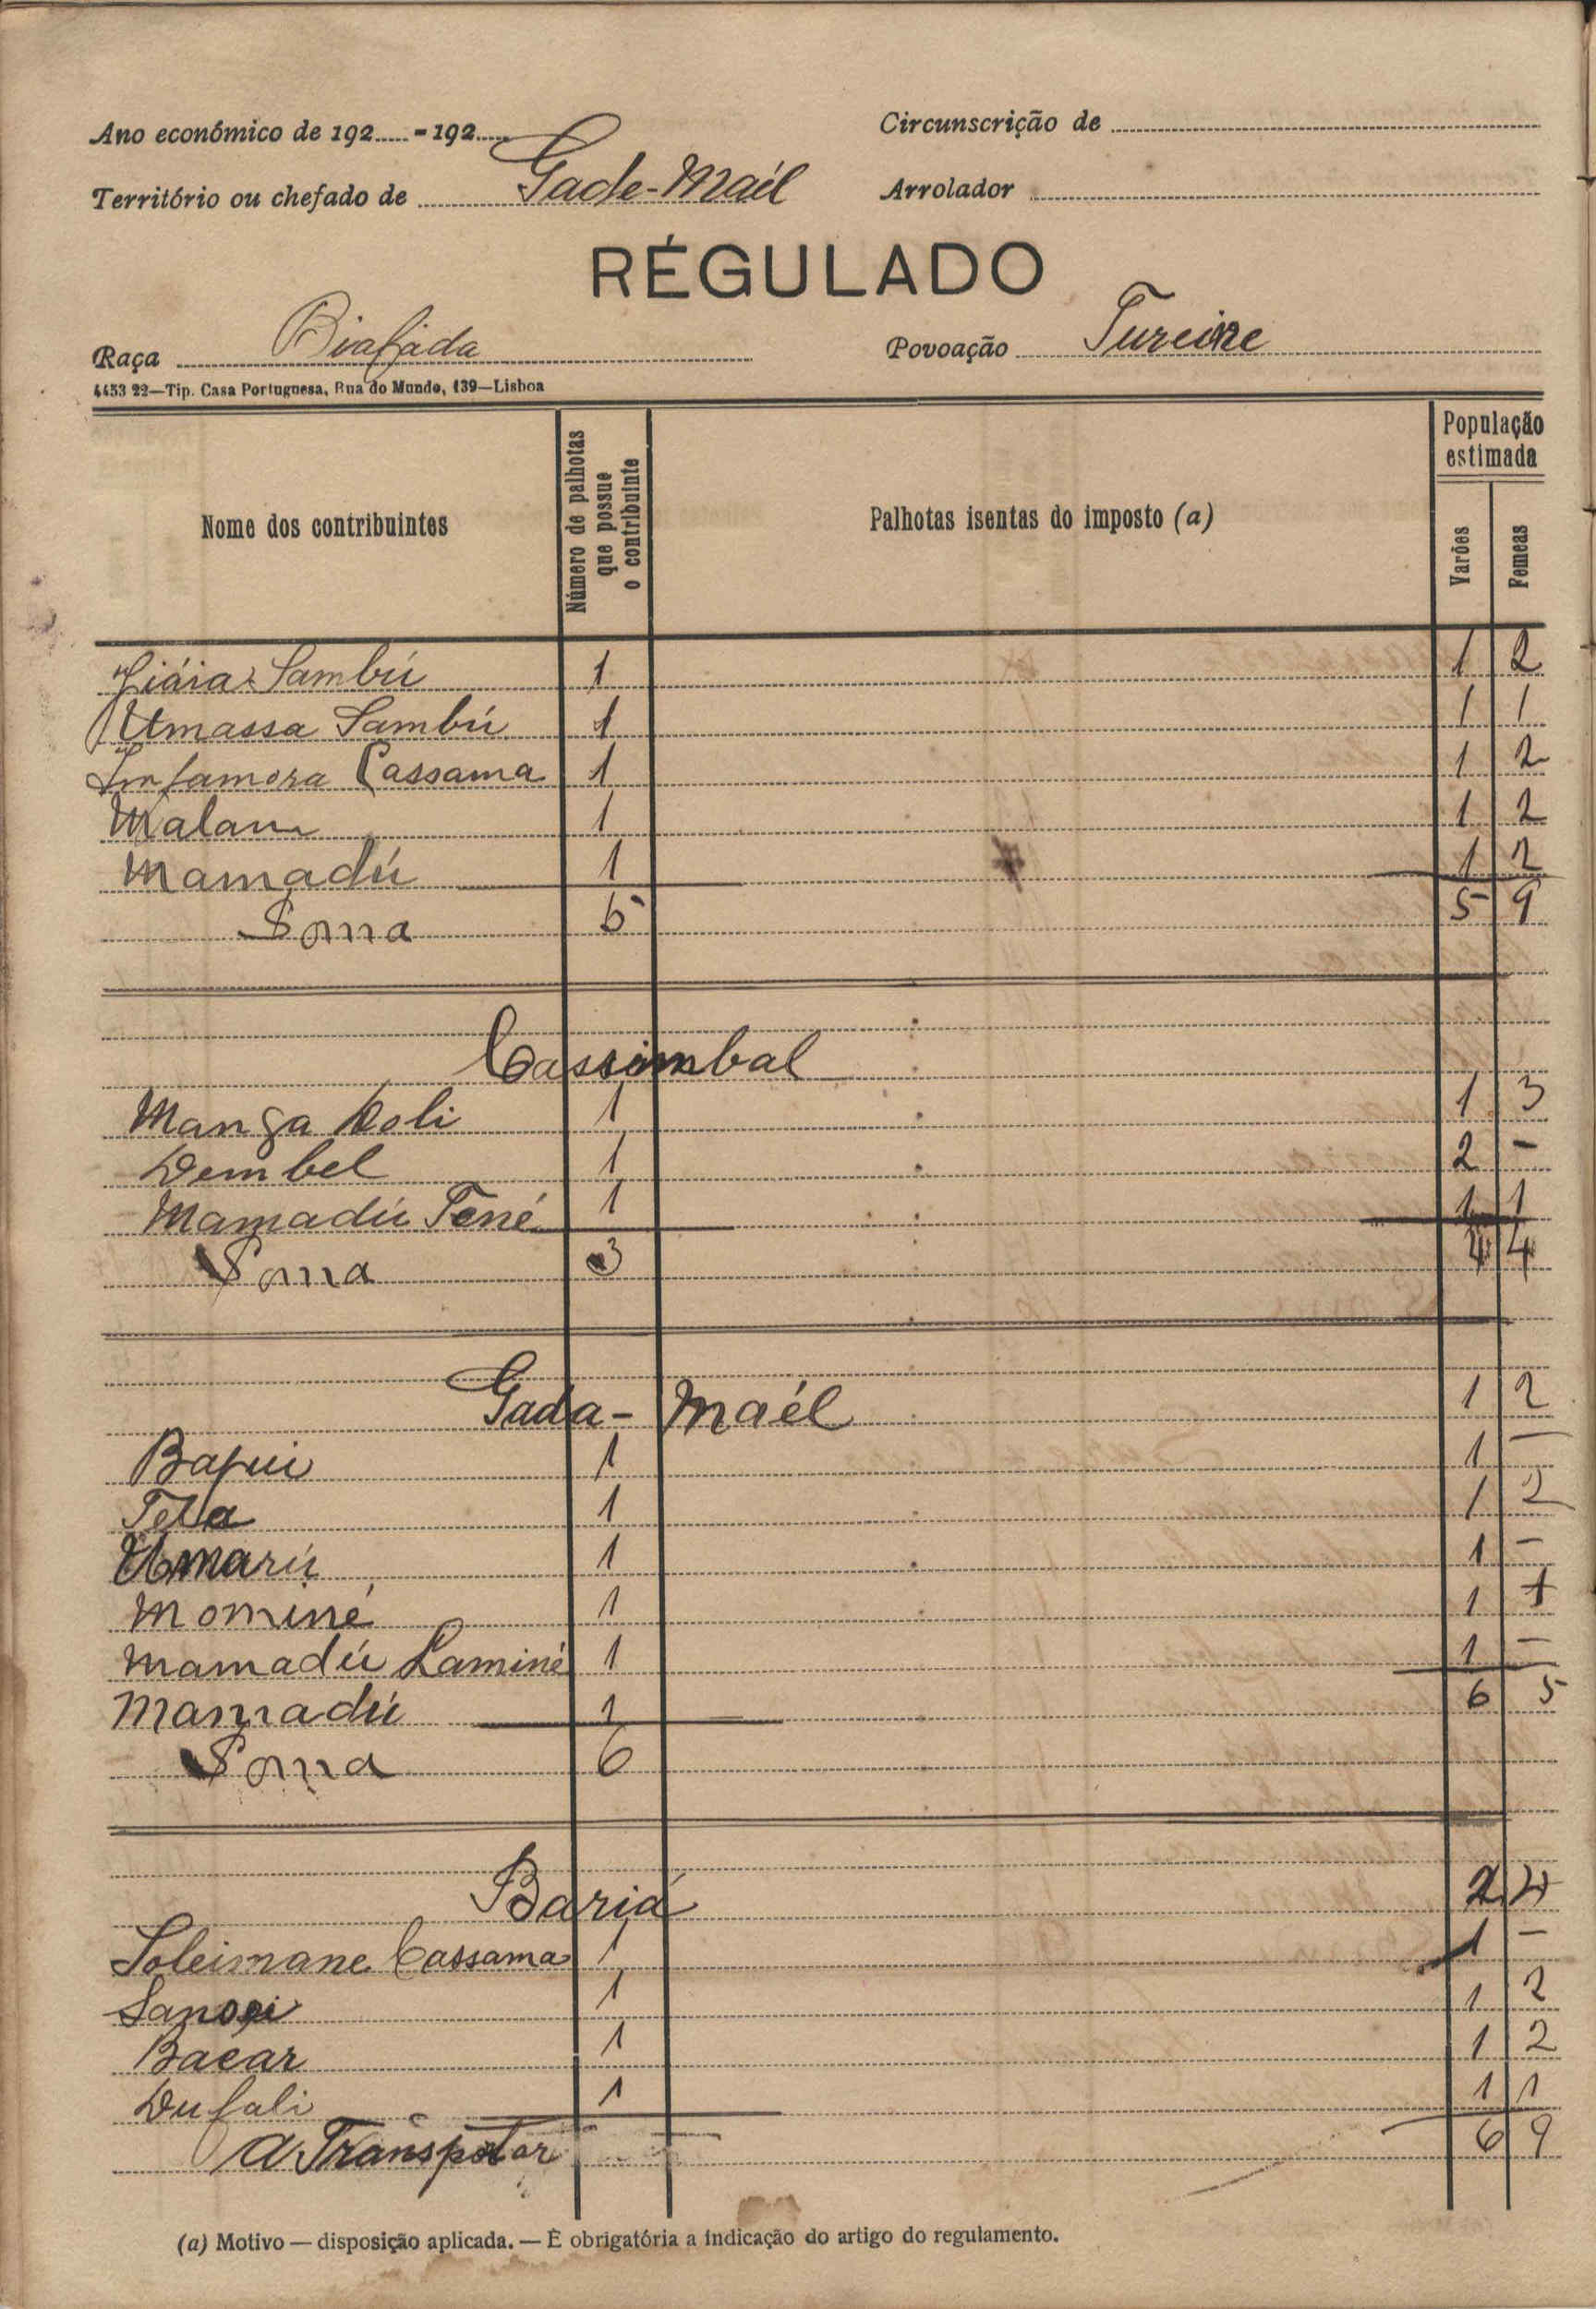 Ano económico de 192..... - 192.....
Circunscrição de
Território ou chefado de Gade-Maél
Arrolador
RÉGULADO
Raça Biafada
Povoação Tureine
4453 22—Tip. Casa Portuguesa, Rua do Mundo, 139—Lisboa
Nome dos contribuintes
Número de palhotas que possue o contribuinte
Palhotas isentas do imposto (a)
População estimada
Varões
Femeas
Jiáia Sambú 1 1 2
Umassa Sambú 1 1 1
Infamora Cassama 1 1 2
Malam 1 1 2
Mamadú 1 1 2
Soma 5 5 9
Cassimbal
Manga Koli 1 1 3
Dembel 1 2 -
Mamadú Tené 1 1 1
Soma 3 4 4
Gada-Maél 1 2
Bafui 1 1 -
Tela 1 1 2
Umarú 1 1 -
Mominé 1 1 1
Mamadú Laminé 1 1 -
Mamadú 1 6 5
Soma 6
Bariá 2 4
Soleimane Cassama 1 1 -
Sanssi 1 1 2
Bacar 1 1 2
Dufali 1 1 1
A Transpotar 6 9
(a) Motivo — disposição aplicada. — É obrigatória a indicação do artigo do regulamento.